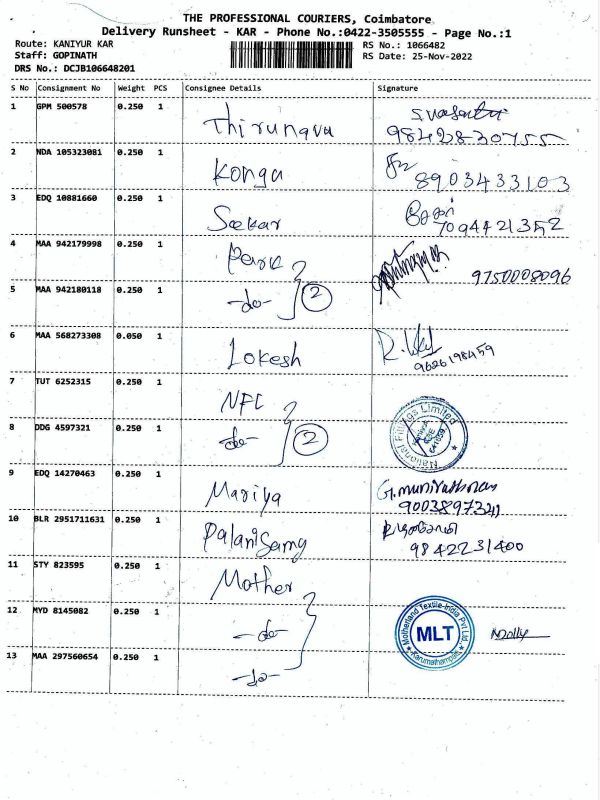 THE PROFESSIONAL COURIERS, Coimbatore
Delivery Runsheet - KAR - Phone No.:0422-3505555 - Page No.:1
Route: KANIYUR KAR
RS No.: 1066482
Staff: GOPINATH
RS Date: 25-Nov-2022
DRS No.: DCJB106648201
S No Consignment No Weight PCS Consignee Details Signature
1 GPM 500578 0.250 1 Thirunavu
9842830755
2 NDA 105323081 0.250 1 Konga
8903433103
3 EDQ 10881660 0.250 1 Seekar சேகர்
7094421352
4 MAA 942179998 0.250 1 Park
9750008096
5 MAA 942180118 0.250 1 -do- 2
6 MAA 568273308 0.050 1 Lokesh
9626198459
7 TUT 6252315 0.250 1 NFL
National Fittings Limited
8 DDG 4597321 0.250 1 -do- 2
9 EDQ 14270463 0.250 1 Mariya G.munirathnam
10 BLR 2951711631 0.250 1 Palanisamy
9842231400
11 STY 823595 0.250 1 Mother
12 MYD 8145082 0.250 1 -do-
Motherland Textile-India Pvt Ltd
MLT
Karumathampatti
Molly
13 MAA 297560654 0.250 1 -do-